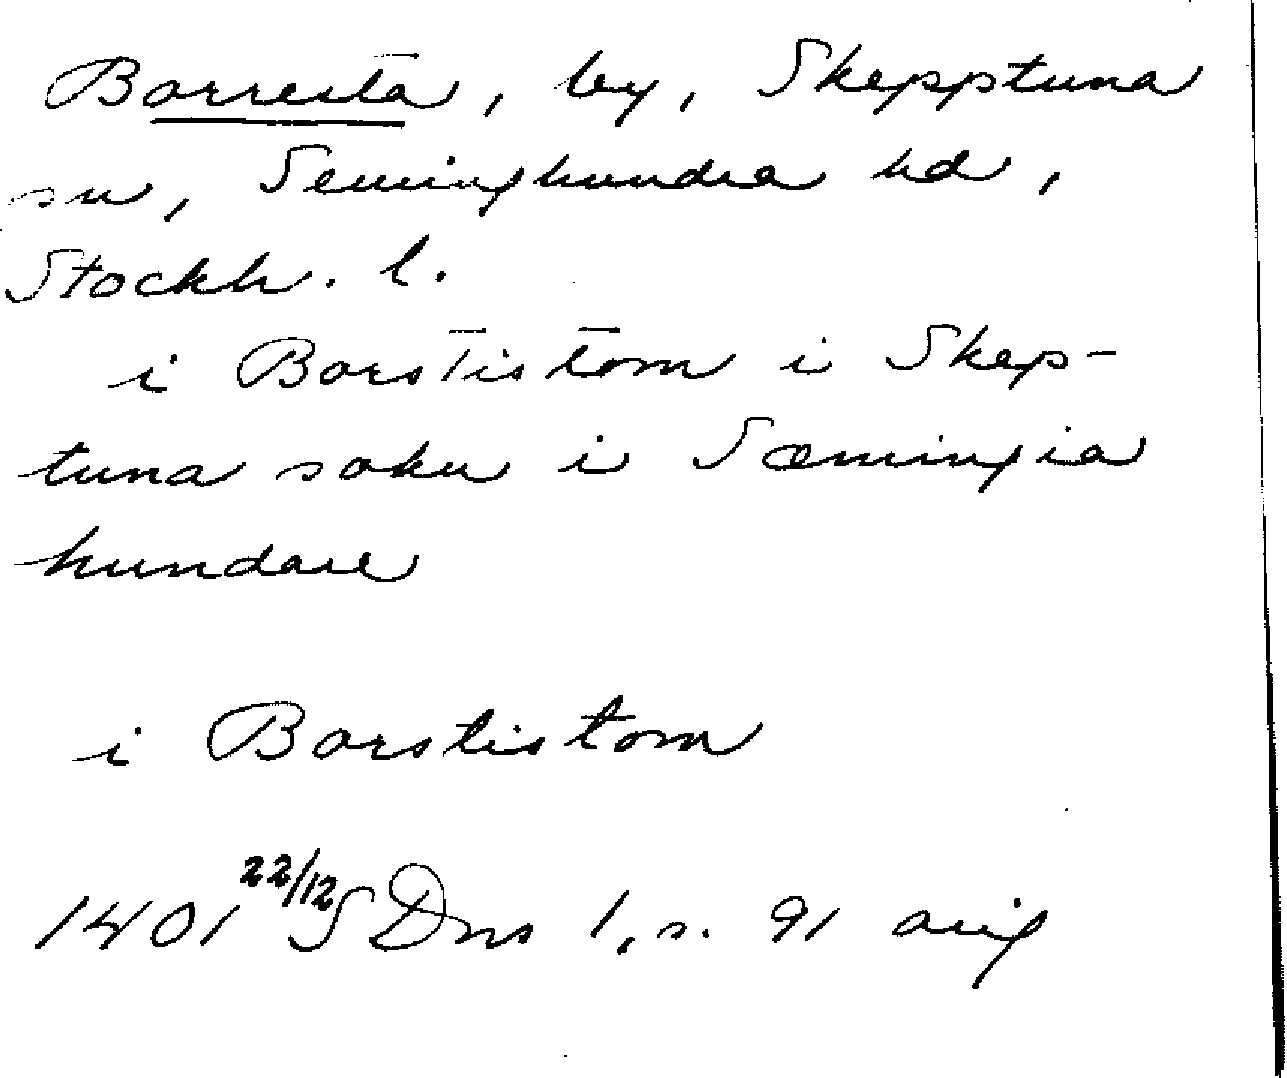 Borresta, by, Skepptuna
sn, Seminghundra hd,
Stockh. l.
i Borstistom i Skep-
tuna sokn i Sæmingia
hundare
i Borstistom
1401 22/12 SDns 1, s. 91 orig